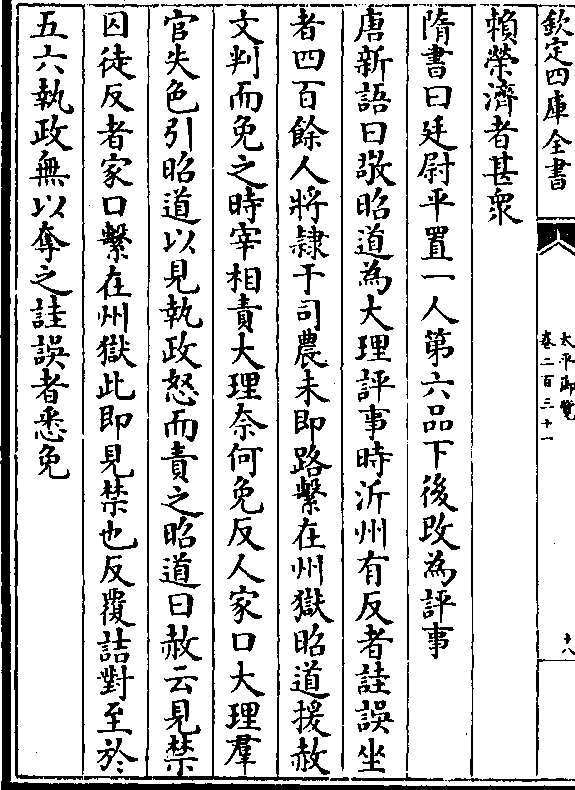 欽定四庫全書
太平御覽
卷二百三十一
十八
賴榮濟者甚衆
隋書曰廷尉平置一人第六品下後改為評事
唐新語曰敬昭道為大理評事時沂州有反者詿誤坐
者四百餘人將隸于司農未即路繫在州獄昭道援赦
文判而免之時宰相責大理奈何免反人家口大理羣
官失色引昭道以見執政怒而責之昭道曰赦云見禁
囚徒反者家口繫在州獄此即見禁也反覆詰對至於
五六執政無以奪之詿誤者悉免